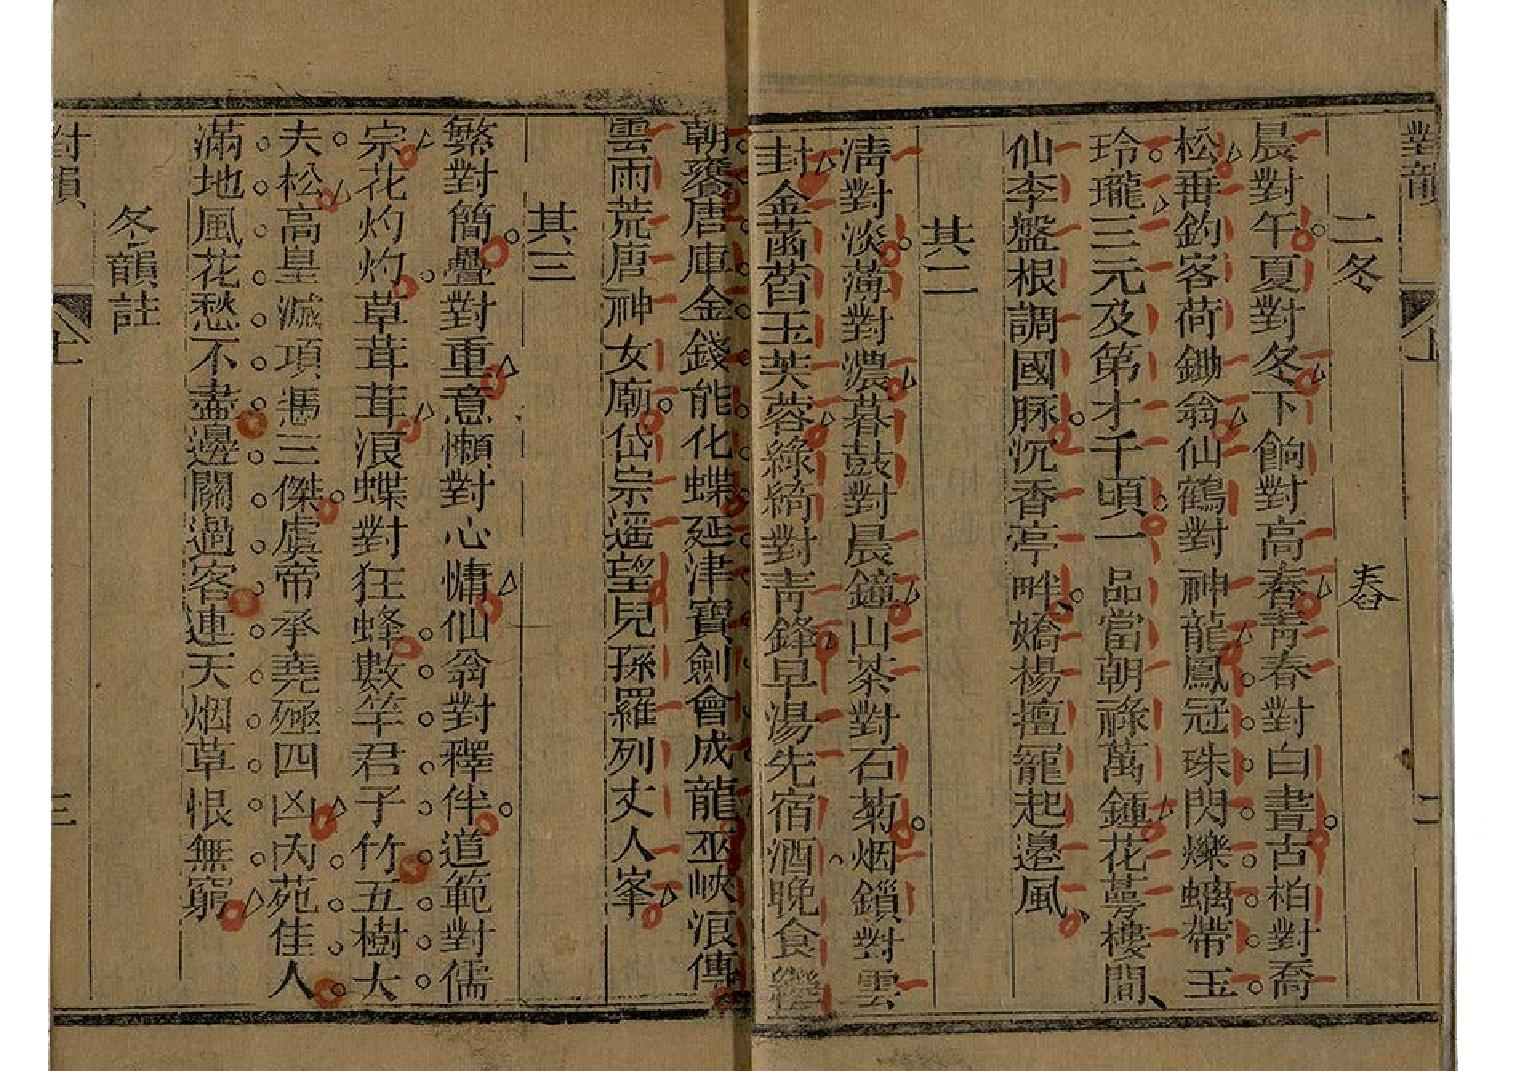 對韻
二
二冬
舂
晨對午夏對冬下餉對高舂靑春對白晝古柏對喬
松垂釣客荷鋤翁仙鶴對神龍鳳冠珠閃爍螭帶玉
玲瓏三元及第才千頃一品當朝祿萬鍾花萼樓間
仙李盤根調國脉沉香亭畔嬌楊擅寵起邊風
其二
淸對淡薄對濃暮鼓對晨鐘山茶對石菊烟鎖對雲
封金菡萏玉芙蓉綠綺對靑鋒早湯先宿酒晚食繼
朝饔唐庫金錢能化蝶延津寶劍會成龍巫峽浪傳
雲雨荒唐神女廟岱宗遥望兒孫羅列丈人峯
其三
繁對簡疊對重意懶對心慵仙翁對釋伴道範對儒
宗花灼灼草茸茸浪蝶對狂蜂數竿君子竹五樹大
夫松高皇滅項憑三傑虞帝承堯殛四凶內苑佳人
滿地風花愁不盡邊關過客連天烟草恨無窮
冬韻註
對韻
三